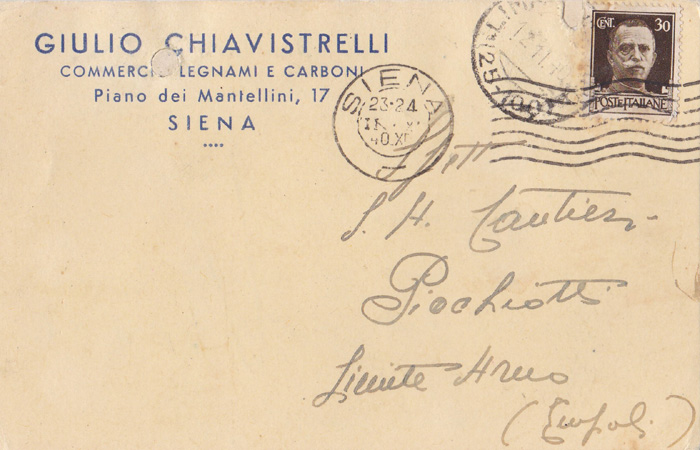 GIULIO CHIAVISTRELLI
COMMERCIO LEGNAMI E CARBONI
Piano dei Mantellini, 17
SIENA
CENT. 30
POSTE ITALIANE
SIENA
23-24
40.XI
Spett
S. A. Cantieri
Picchiotti
Limite Arno
(Empoli)